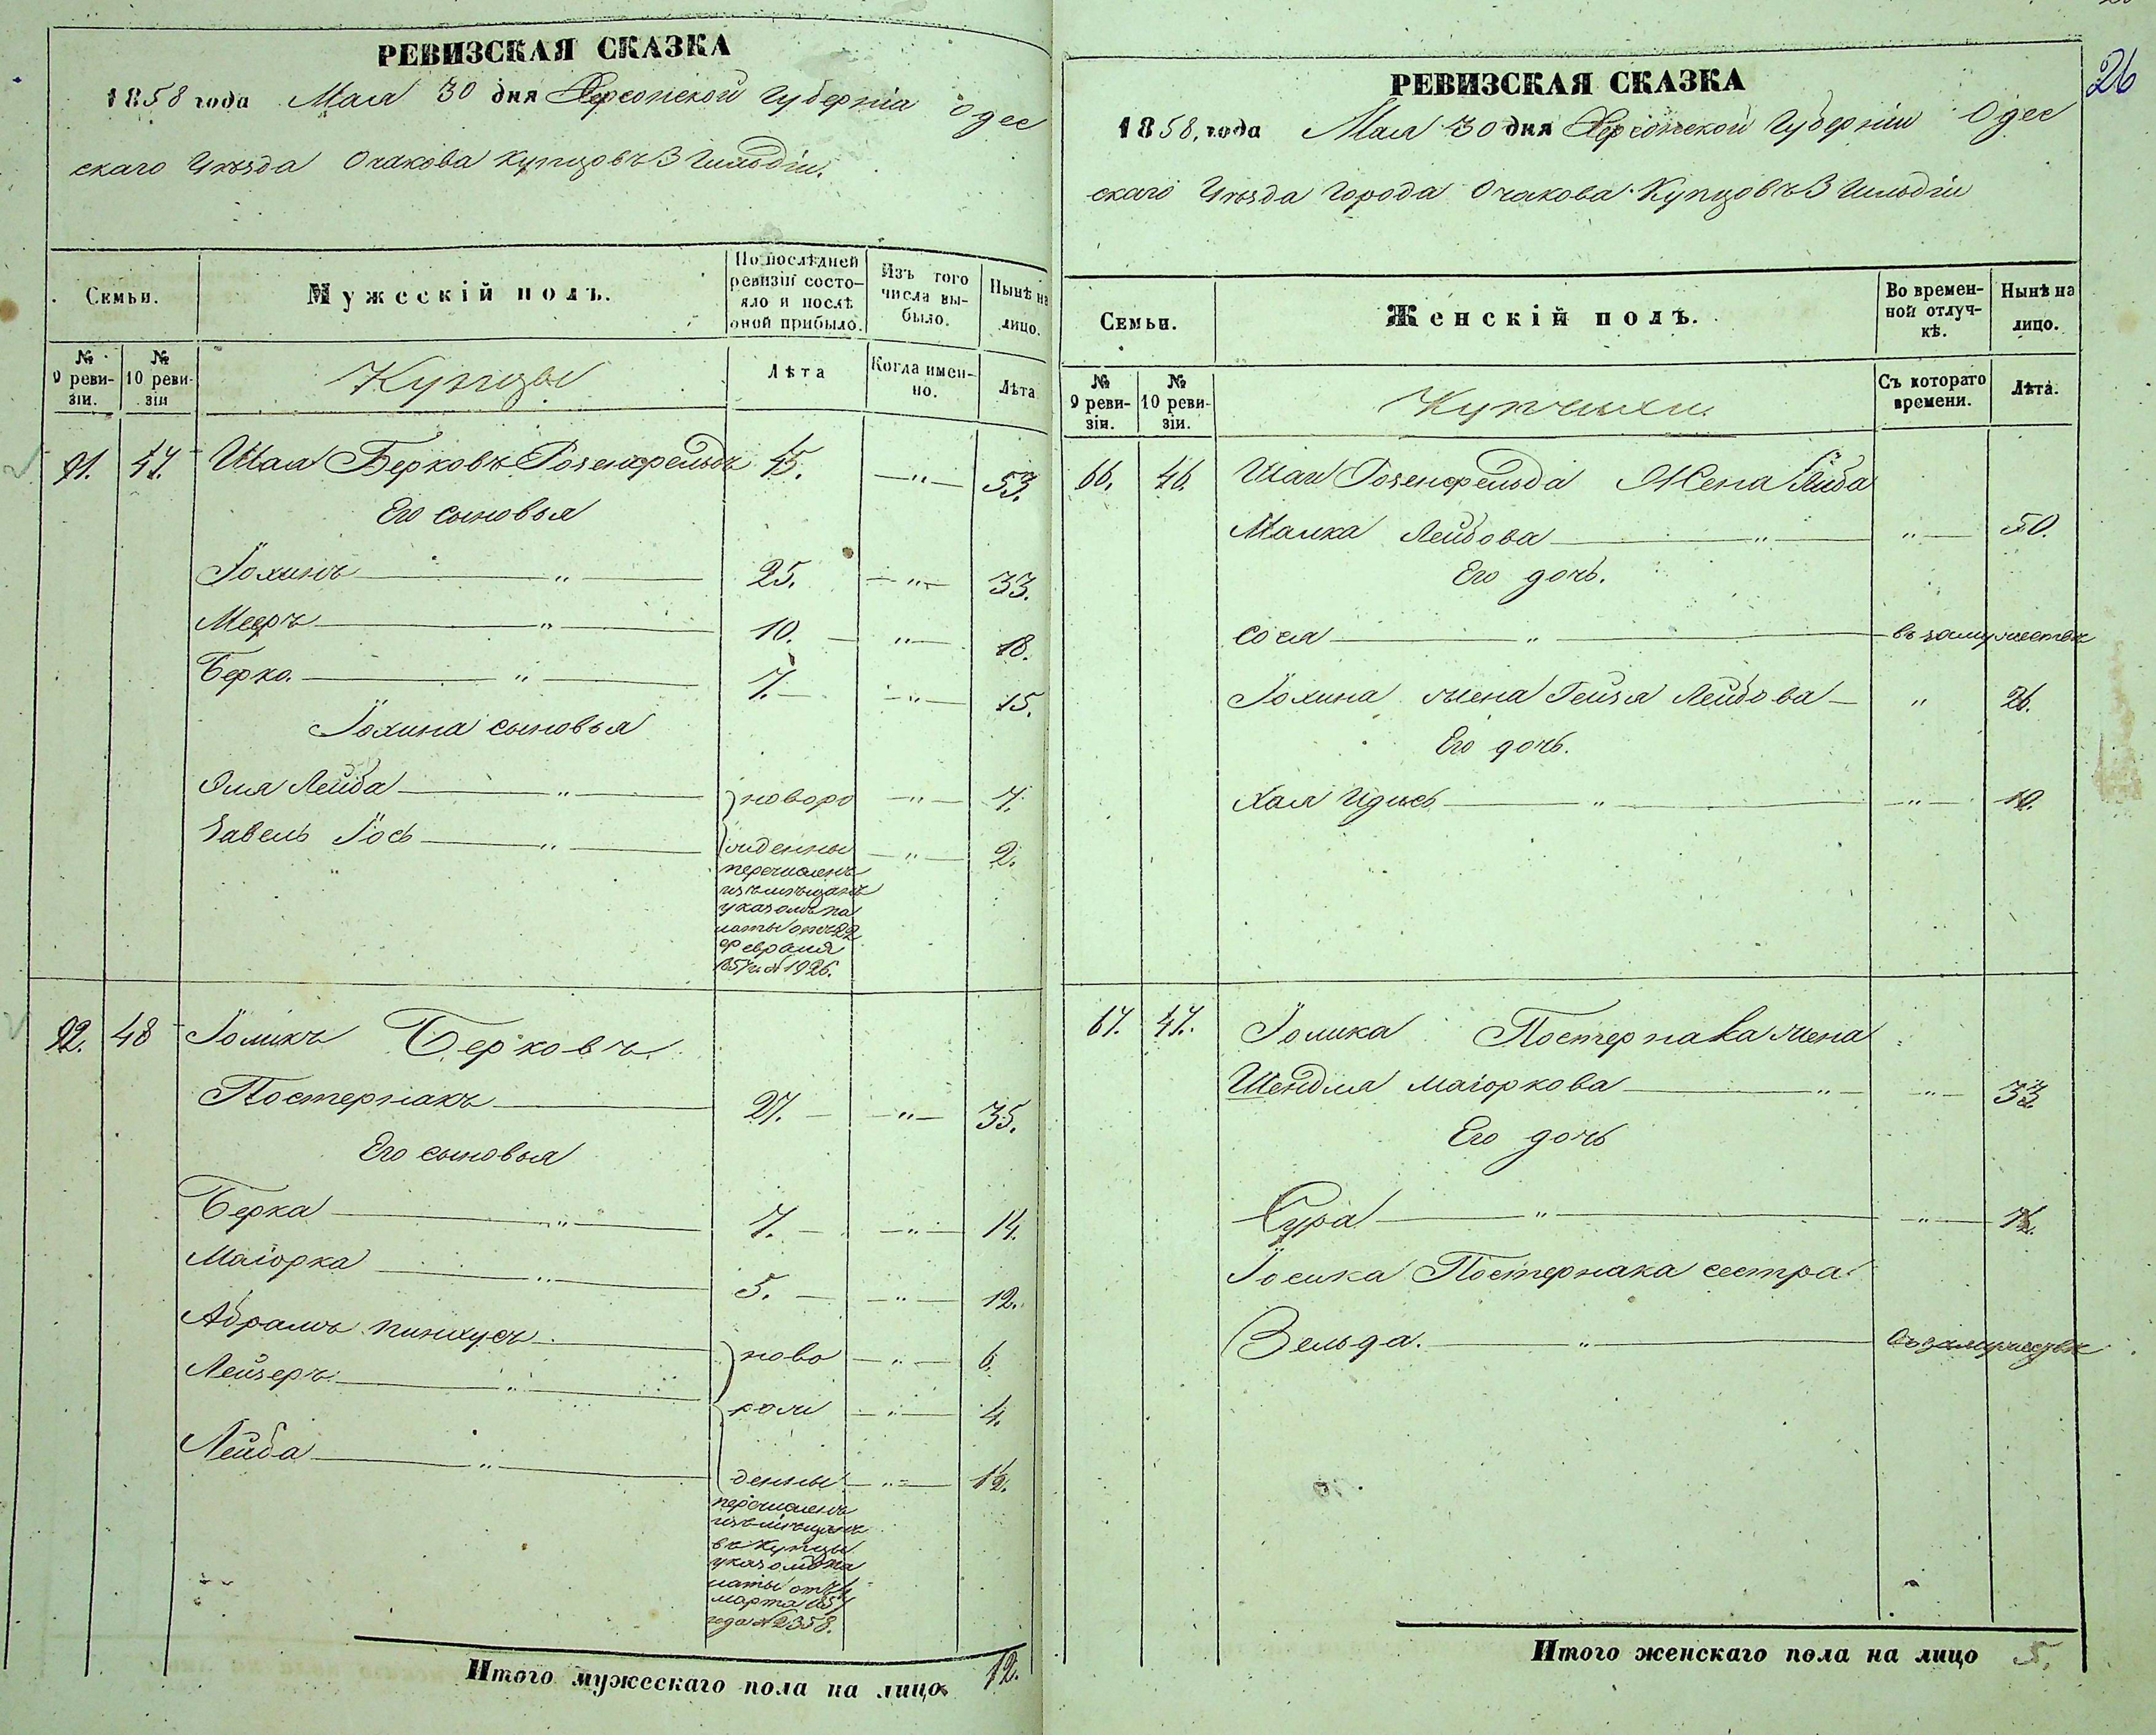 РЕВИЗСКАЯ СКАЗКА
1858 года Мая 30 дня Херсонской Губерніи Одес
скаго Уѣзда Очакова Купцовъ 3 Гильдіи.
Семьи.
Мужескій полъ.
По послѣдней ревизіи состо-
яло и послѣ оной прибыло.
Изъ того числа вы-
было.
Нынѣ на лицо.
№ 9 реви-
зіи.
№ 10 реви-
зіи
Купцы
Лѣта
Когда имен-
но.
Лѣта
91. 47. Шая Берковъ Розенфельдъ 45. —"— 53.
Его сыновья
Іохинъ —"— 25. —"— 33.
Мееръ —"— 10. —"— 18.
Берко. —"— 7. —"— 15.
Іохина сыновья
Эля Лейба —"— новоро —"— 7.
Завель Іось —"— жденны —"— 2.
перечисленъ
изъ мѣщанъ
указомъ па
латы отъ 22
февраля
1857 г. № 1926.
92. 48 Іоликъ Берковъ
Постернакъ 27. —"— 35.
Его сыновья
Берка —"— 7. —"— 14.
Маіорка —"— 5. —"— 12.
Абрамъ Пинхусъ ново —"— 6.
Лейзеръ —"— рож —"— 4.
Лейба —"— денны —"— 1½.
перечисленъ
изъ мѣщанъ
въ купцы
указомъ па
латы отъ 4
марта 1857
года № 2358.
Итого мужескаго пола на лицо 12.
26
РЕВИЗСКАЯ СКАЗКА
1858, года Мая 30 дня Херсонской Губерніи Одес
скаго Уѣзда Города Очакова Купцовъ 3 Гильдіи
Семьи.
Женскій полъ.
Во времен-
ной отлуч-
кѣ.
Нынѣ на лицо.
№ 9 реви-
зіи.
№ 10 реви-
зіи.
Купчихи.
Съ котораго времени.
Лѣта.
66. 46. Шаи Розенфельда Жена
Малка Лейбова —"— "— 50.
Его дочь.
Сося —"— въ замужествѣ
Іохина жена Гейзя Лейбова — " 26.
Его дочь.
Хая Идись —"— —"— 10.
67. 47. Іолика Постернака жена
Шендля Маіоркова —"— —"— 33
Его дочь
Сура —"— —"—
Іосика Постернака сестра
Зельда. —"— въ замужествѣ
Итого женскаго пола на лицо 5.